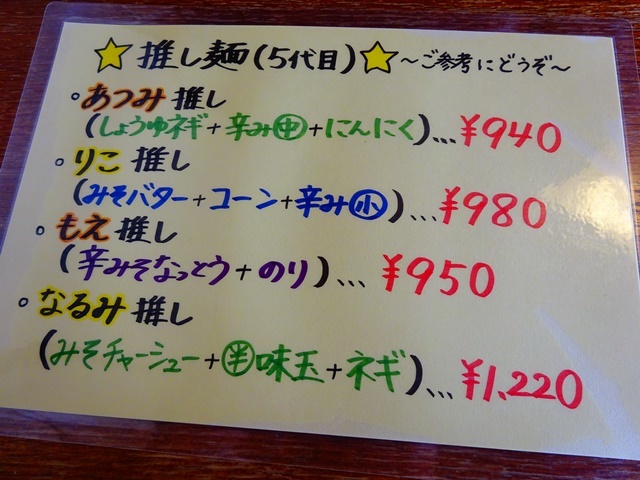 ☆推し麺(5代目)☆～ご参考にどうぞ～
。あつみ推し
(しょうゆネギ+辛み㊥+にんにく)...¥940
。りこ推し
(みそバター+コーン+辛み㊙小)...¥980
。もえ推し
(辛みそなっとう+のり)...¥950
。なるみ推し
(みそチャーシュー+半味玉+ネギ)...¥1,220